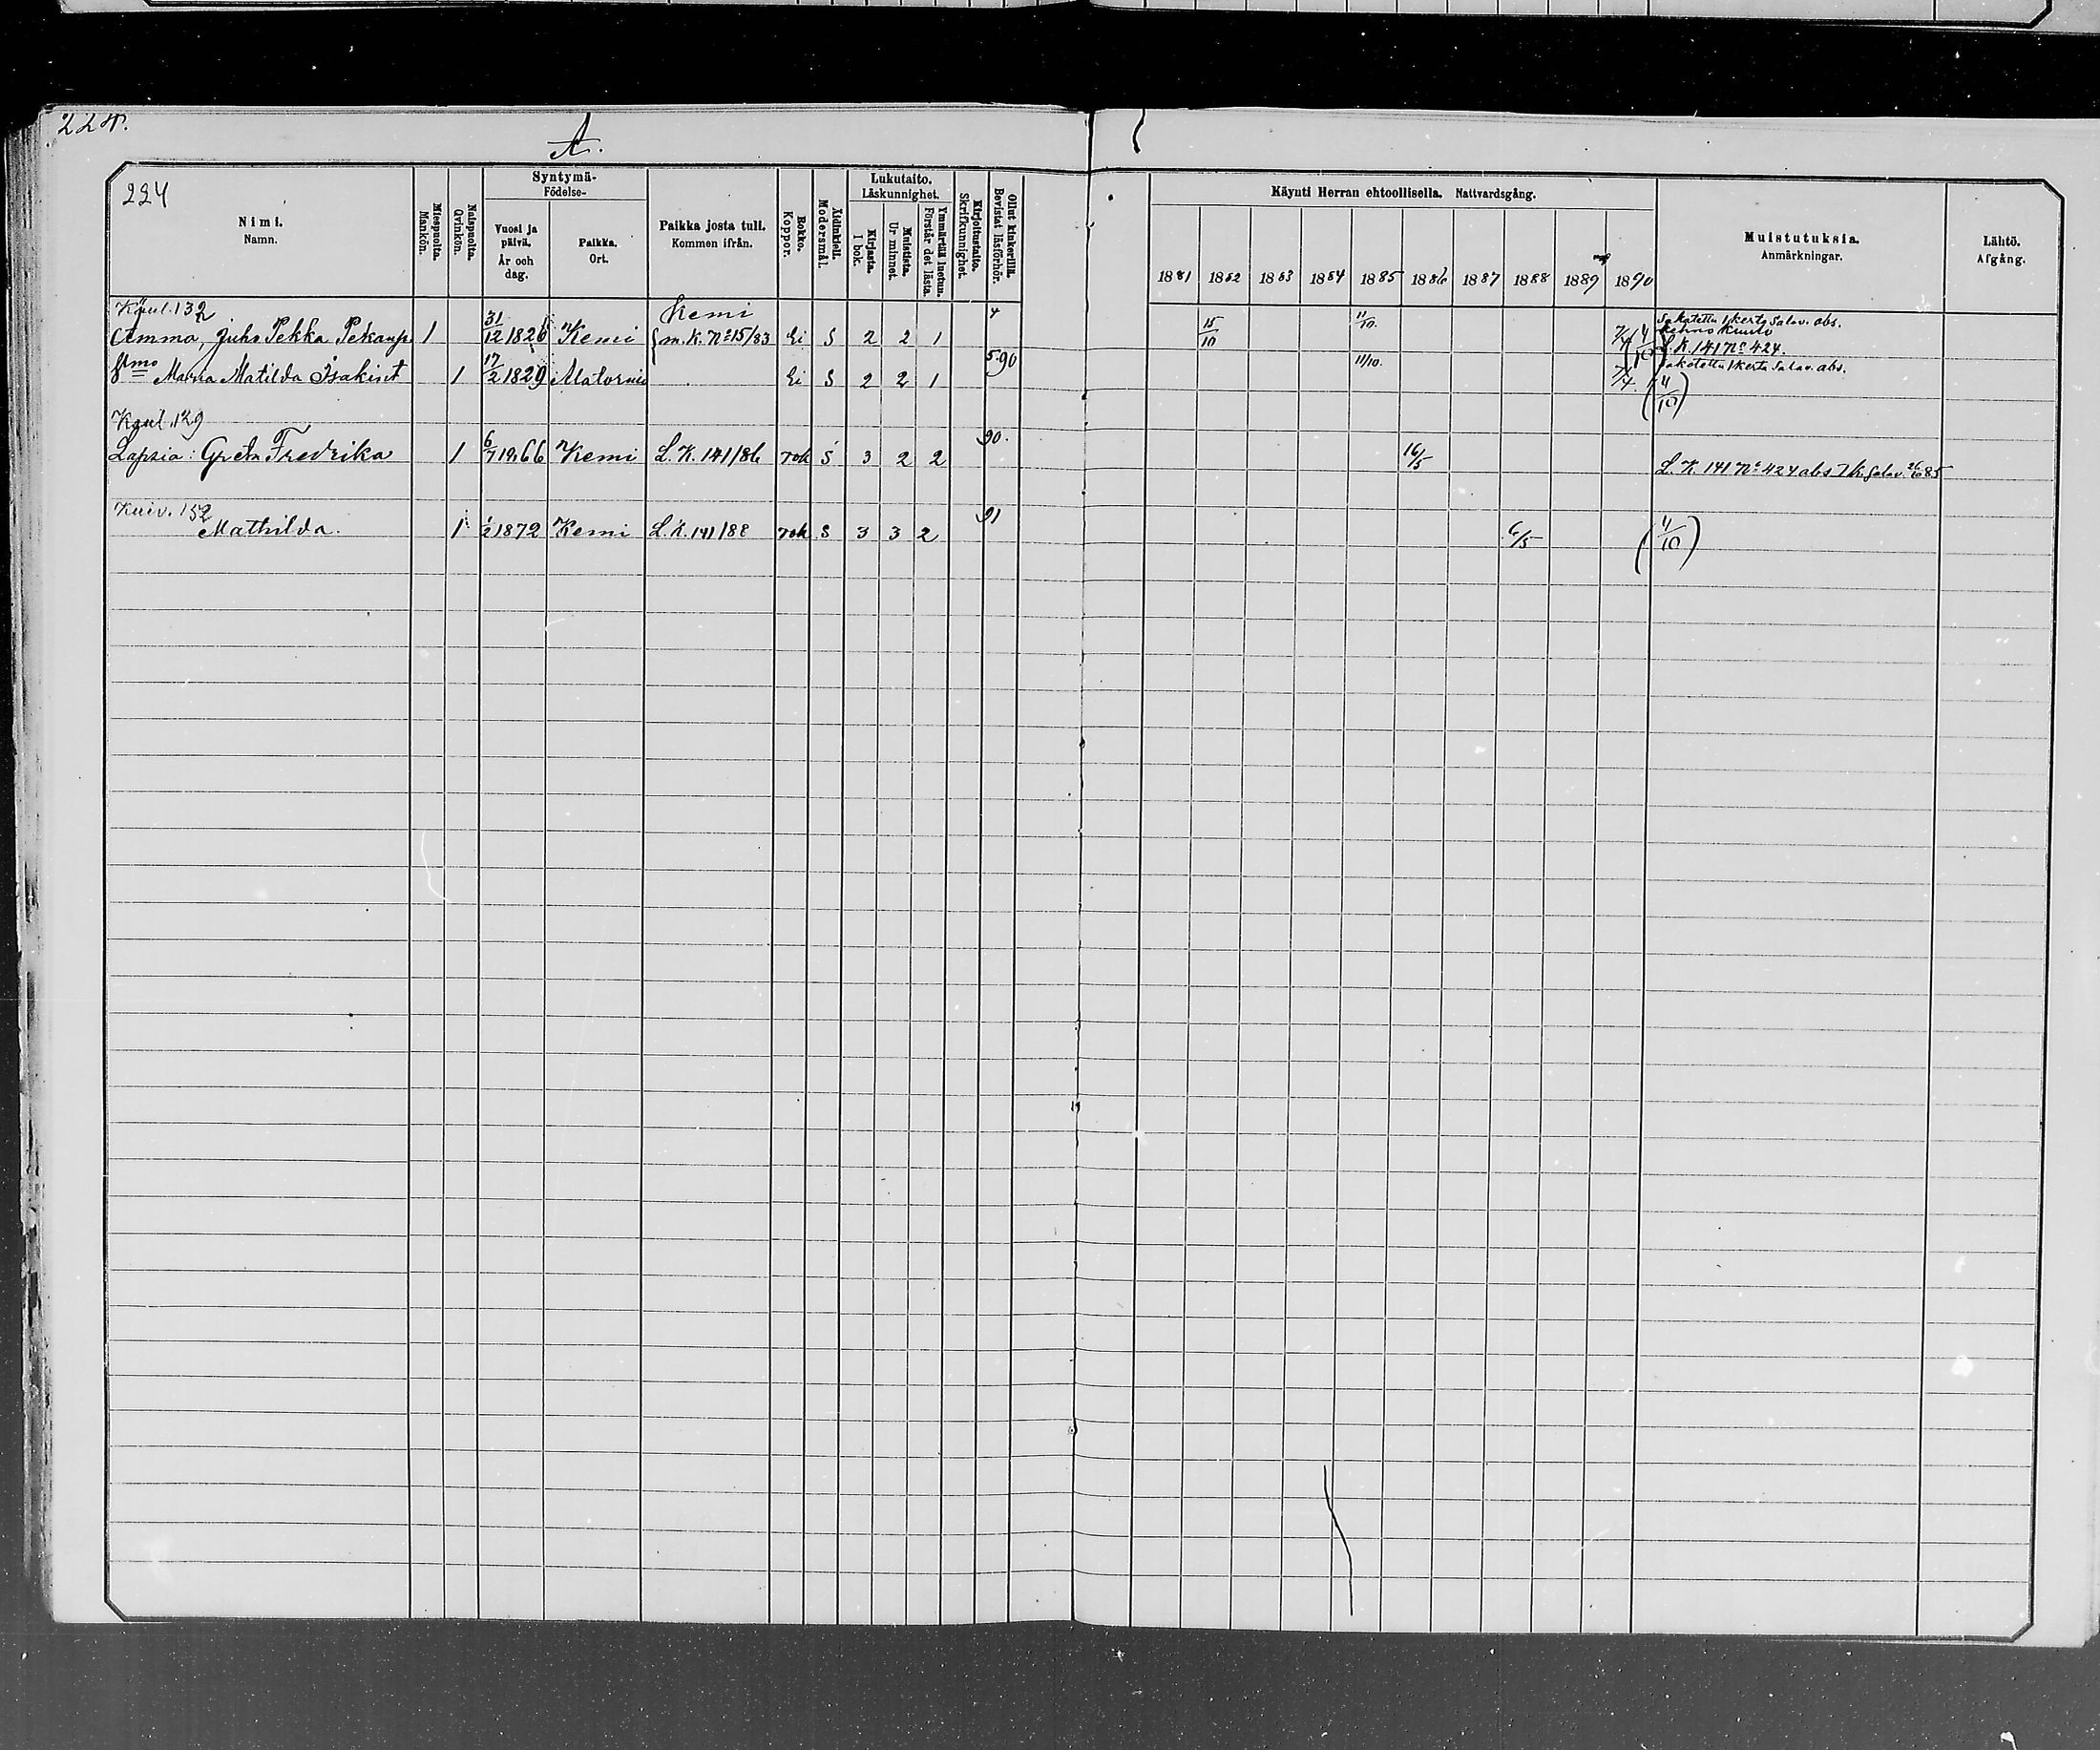 224.
A.
224
Nimi.
Namn.
Miespuolta.
Mankön.
Naispuolta.
Qvinkön.
Syntymä-
Födelse-
Vuosi ja
päivä.
År och
dag.
Paikka.
Ort.
Paikka josta tuli.
Kommen ifrån.
Rokko.
Koppor.
Äidinkieli.
Modersmål.
Lukutaito.
Läskunnighet.
Kirjasta.
I bok.
Muistista.
Ur minnet.
Ymmärtää luetun.
Förstår det lästa.
Kirjoitustaito.
Skrifkunnighet.
Ollut kinkerillä.
Bevistat läsförhör.
Käynti Herran ehtoollisella. Nattvardsgång.
1881 1882 1883 1884 1885 1886 1887 1888 1889 1890
Muistutuksia.
Anmärkningar.
Lähtö.
Afgång.
132 Kemi 4
Juho Pekka 1 31/12 1826 Kemi m. K. No 15/83 Ei S 2 2 1 15/10 11/10. 7/4 (4/10) 1 kerta Salav. abs.
L. K. 141 No 424.
5.90
Maria Matilda Isakint 1 17/2 1829 Alatornio Ei S 2 2 1 11/10. 7/4. (4/10) 1 kerta Salav. abs.
129 90.
Lapsia: Greta Fredrika 1 6/7 1866 Kemi L. K. 141/86 rok S 3 2 2 16/5 L. K. 141 No 424 abs 85
152 91
Mathilda. 1 1/2 1872 Kemi L. K. 141/88 rok S 3 3 2 6/5 (4/10)